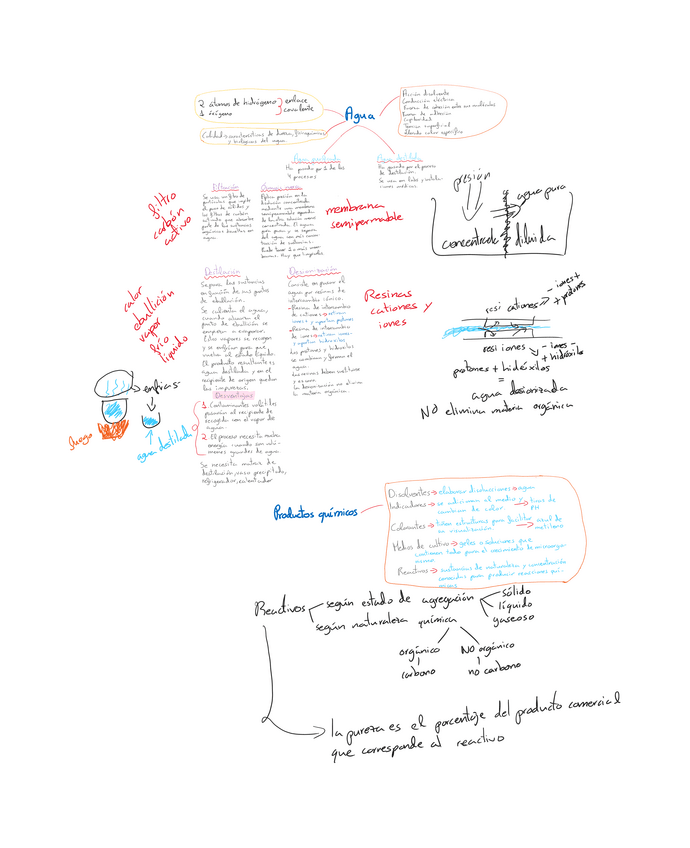 2 átomos de hidrógeno
1 oxígeno
enlace
covalente
Agua
Acción disolvente
Conducción eléctrica
Fuerza de cohesión entre sus moléculas
Fuerza de adhesión
Capilaridad
Tensión superficial
Elevado calor específico
Calidad y características de dureza, fisicoquímicas
y biológicas del agua
Agua purificada
Ha pasado por 1 de los
4 procesos
Agua destilada
Ha pasado por el proceso
de destilación.
Se usa en labs y
ciones médicas.
filtro
carbón
activo
Filtración
Se usa un filtro de
partículas
y
los filtros de carbón
activado que absorbe
parte de las sustancias
orgánicas disueltas en
agua.
Ósmosis inversa
Aplica presión en la
disolución concentrada
mediante una membrana
semipermeable
concentrada. El agua
pasa pura y se separa
del agua con más concen-
tración de sustancias.
membrana
semipermable
presión
agua pura
concentrada
diluida
calor
ebullición
vapor
frío
líquido
Destilación
Separa las sustancias
en función de sus puntos
de ebullición.
Se calienta el agua,
cuando alcanza el
punto de ebullición se
empieza a evaporar.
Estos vapores se recogen
y se enfrían para que
vuelvan al estado líquido.
El producto resultante es
agua destilada y en el
recipiente de origen quedan
las impurezas.
Desventajas
1. Contaminantes volátiles
pasarían al recipiente de
recogida con el vapor de
agua.
2. El proceso necesita mucha
energía cuando son volú-
menes grandes de agua.
Se necesita matraz de
destilación, vaso precipitado,
refrigerador, calentador
Desionización
Consiste en pasar el
agua por resinas de
intercambio iónico.
-Resina de intercambio
de cationes → retiran
iones + y aportan protones
-Resina de intercambio
de iones → retiran iones
- y aportan hidróxilos
Los protones y hidróxilos
se combinan y forman el
agua.
La desionización no elimina
la materia orgánica.
Resinas
cationes y
iones
resi cationes
- iones +
+ protones
resi iones
- iones -
+ hidróxilos
protones + hidróxilos
=
agua desionizada
NO elimina materia orgánica
enfrias
fuego
agua destilada
Productos químicos
Disolventes → elaborar disoluciones → agua
Indicadores → se adicionan al medio y
cambian de color. → tiras de
PH
Colorantes → tiñen estructuras para facilitar
su visualización. → azul de
metileno
Medios de cultivo → geles o soluciones que
contienen todo para el crecimiento de microorga-
nismos
Reactivos → sustancias de naturaleza y concentración
conocidas para producir reacciones quí-
micas
Reactivos
según estado de agregación
sólido
líquido
gaseoso
según naturaleza química
orgánico
NO orgánico
carbono
no carbono
la pureza es el porcentaje del producto comercial
que corresponde al reactivo